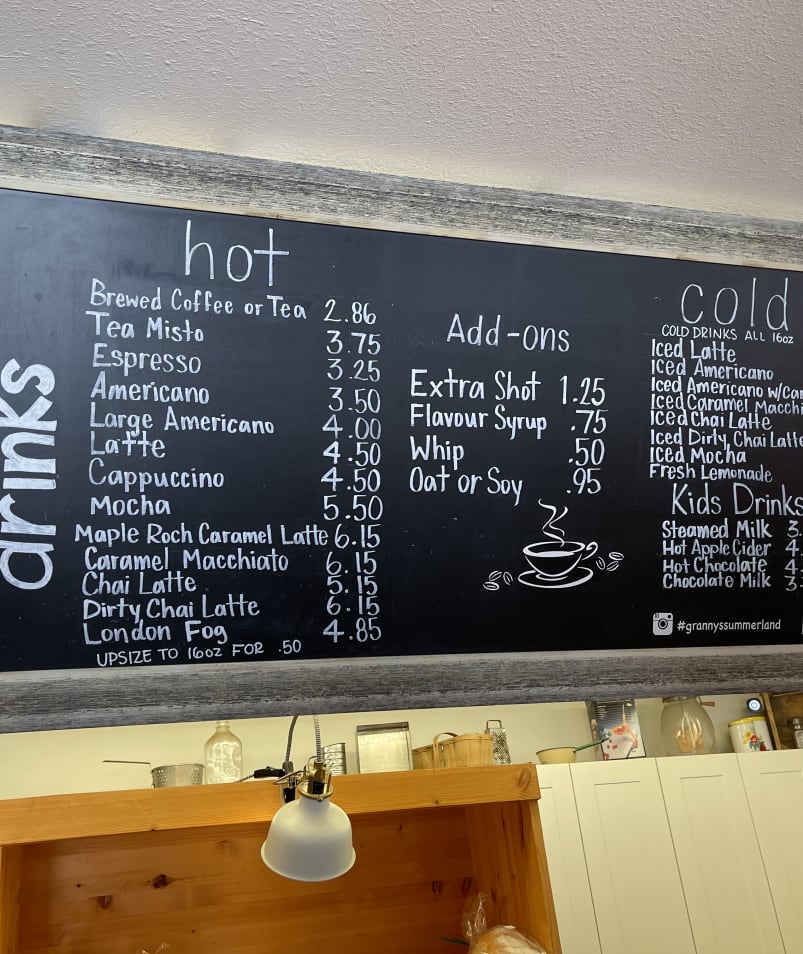 drinks
hot
Brewed Coffee or Tea 2.86
Tea Misto 3.75
Espresso 3.25
Americano 3.50
Large Americano 4.00
Latte 4.50
Cappuccino 4.50
Mocha 5.50
Maple Roch Caramel Latte 6.15
Caramel Macchiato 6.15
Chai Latte 5.15
Dirty Chai Latte 6.15
London Fog 4.85
UPSIZE TO 16oz FOR .50
Add-ons
Extra Shot 1.25
Flavour Syrup .75
Whip .50
Oat or Soy .95
cold
COLD DRINKS ALL 16oz
Iced Latte
Iced Americano
Iced Americano w/Car
Iced Caramel Macchi
Iced Chai Latte
Iced Dirty Chai Latte
Iced Mocha
Fresh Lemonade
Kids Drinks
Steamed Milk 3.
Hot Apple Cider 4
Hot Chocolate 4.
Chocolate Milk 3.
#grannyssummerland